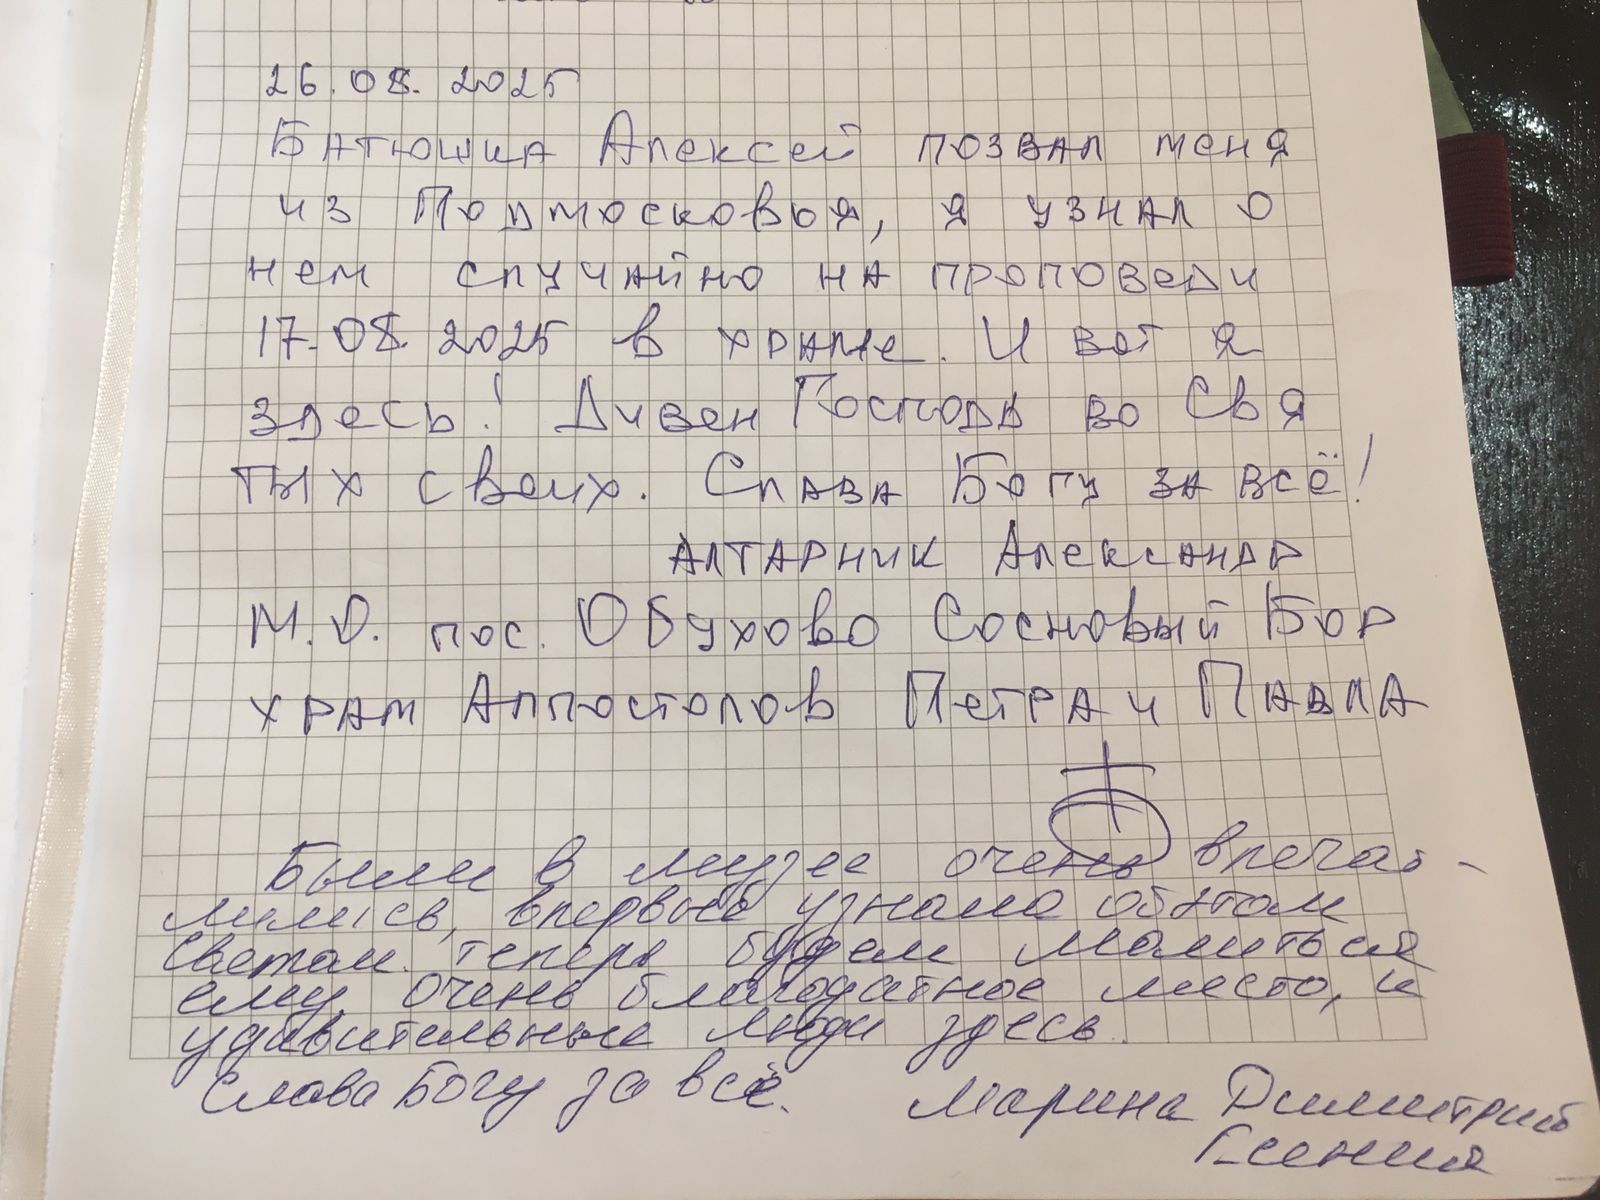 26.08.2025
Батюшка Алексей позвал меня
из Подмосковья, я узнал о
нем случайно на проповеди
17.08.2025 в храме. И вот я
здесь! Дивен Господь во Свя
тых своих. Слава Богу за всё!
Алтарник Александр
М.О. пос. Обухово Сосновый Бор
храм Аппостолов Петра и Павла
Были в музее очень впечат-
лились, впервые узнала об этом
святом. теперь будем молиться
ему, очень благодатное место, и
удивительные люди здесь.
Слава Богу за всё.
Марина Димитрий
Есения